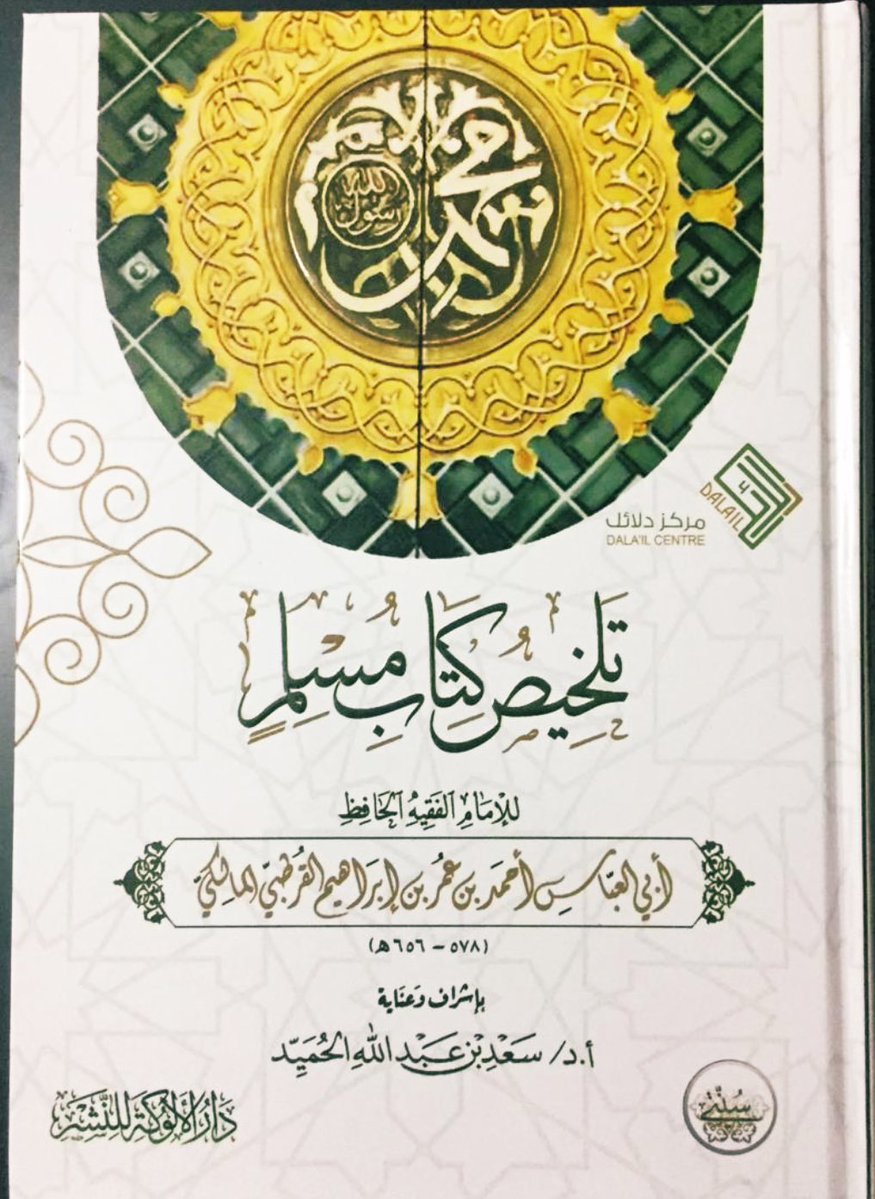 محمد
رسول الله
DALAIL
مركز دلائل
DALA'IL CENTRE
تَلخِيصُ كِتَابِ مُسْلِمٍ
للإمَامِ الفَقِيْهِ الحَافِظِ
أبي العبَّاسِ أحمَد بن عُمَر بن إبرَاهيم القُرطُبيِّ المالكيِّ
(٥٧٨ - ٦٥٦ هـ)
بإشراف وَعنَاية
أ.د/ سَعَدِ بْنِ عَبْدِ اللهِ الحُمَيِّد
سُنَّتي
دَارُ الأَلُوكَة لِلنَّشْرِ